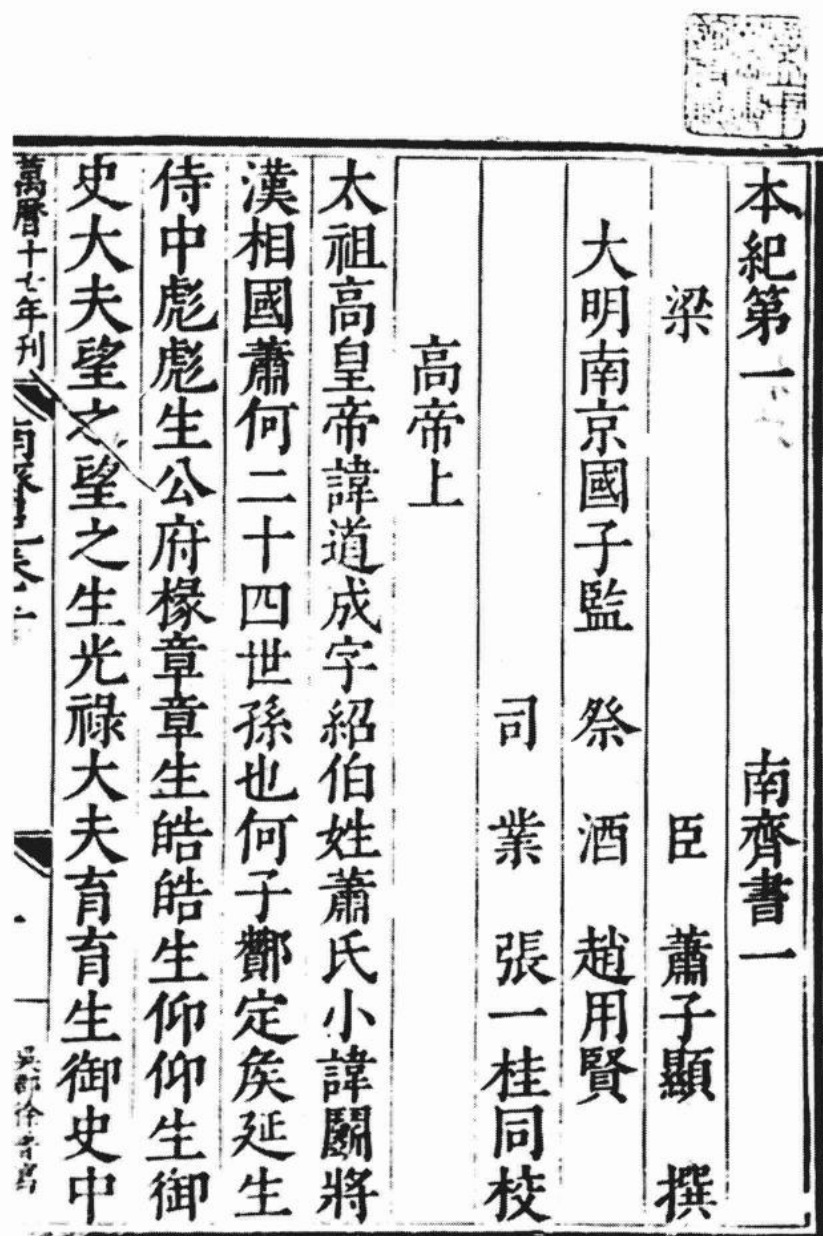 本紀第一 南齊書一
梁 臣 蕭子顯 撰
大明南京國子監 祭 酒 趙用賢
司 業 張一桂同校
高帝上
太祖高皇帝諱道成字紹伯姓蕭氏小諱鬬將
漢相國蕭何二十四世孫也何子酇定矦延生
侍中彪彪生公府椽章章生皓皓生仰仰生御
史大夫望之望之生光祿大夫育育生御史中
萬曆十七年刊